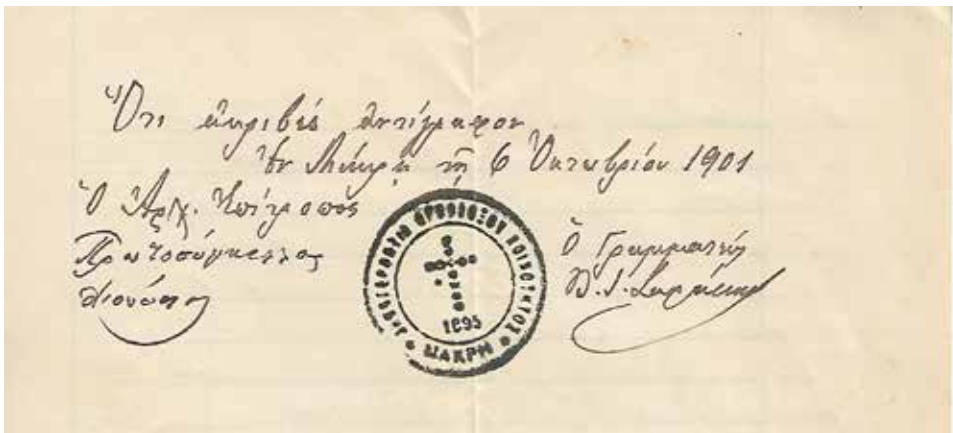 Ὅτι ἀκριβὲς ἀντίγραφον
Ἐν Μάκρῃ τῇ 6 Ὀκτωβρίου 1901
Ὁ Ἀρχ. Ἐπίτροπος
Πρωτοσύγκελλος
Διονύσιος
ΟΡΘΟΔΟΞΟΥ ΚΟΙΝΟΤΗΤΟΣ
1895
ΜΑΚΡΗ
Ὁ Γραμματεύς